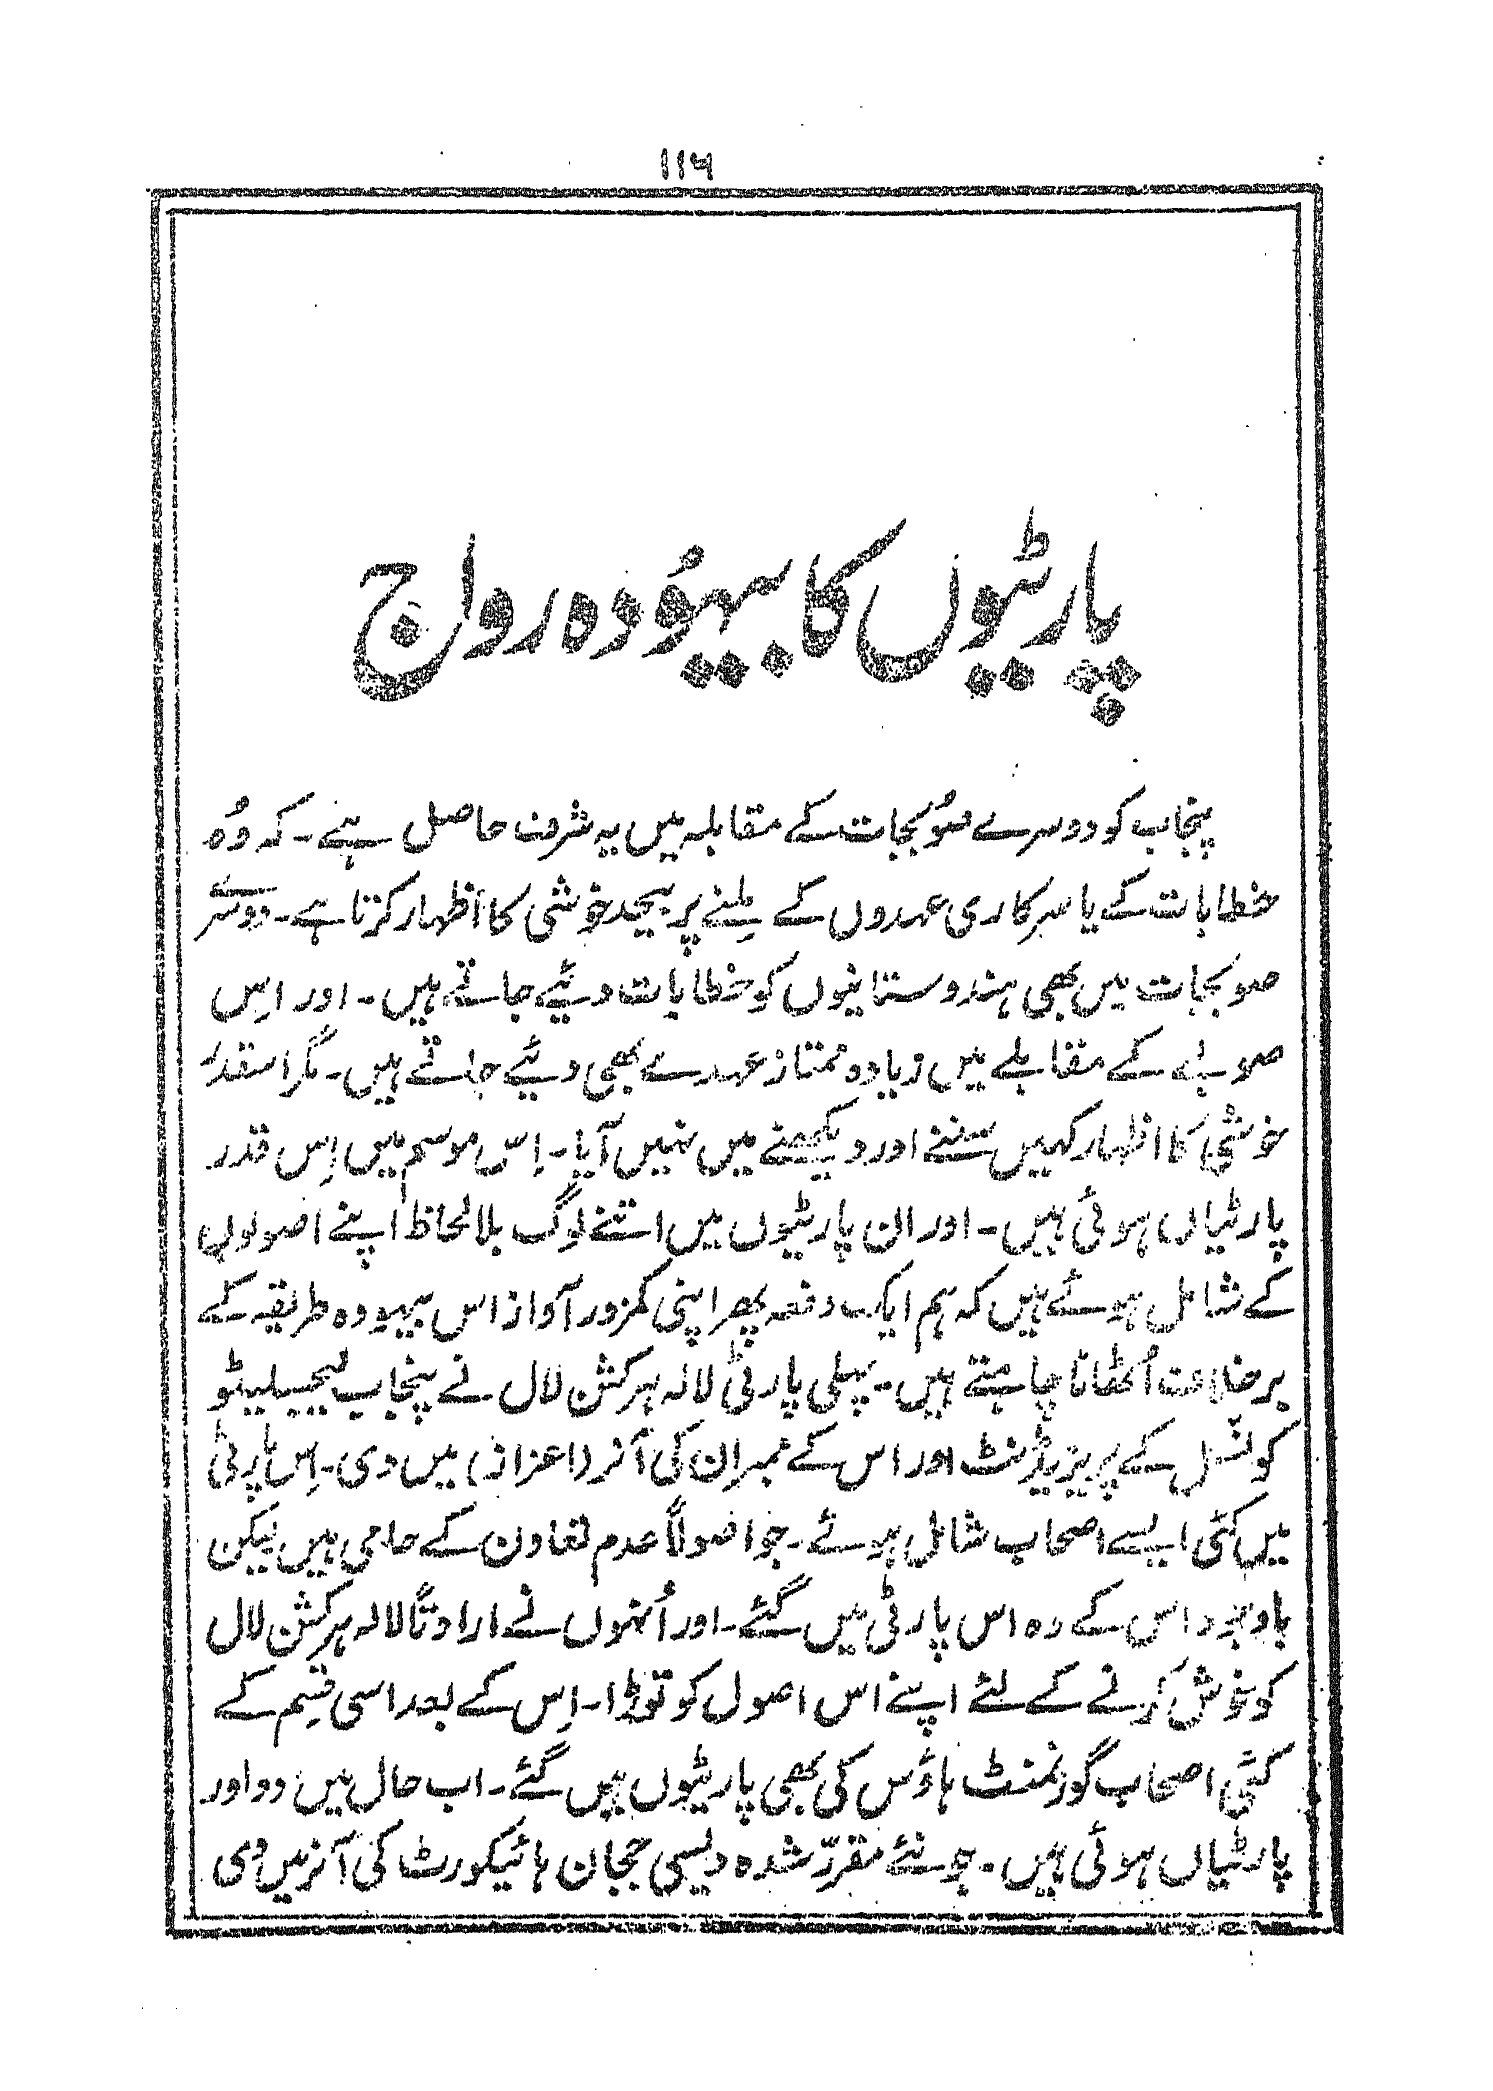 ۱۱۶
پارٹیوں کا بیہُودہ رواج
پنجاب کو دوسرے صُوبجات کے مقابلہ میں یہ شرف حاصل ہے۔ کہ وُہ
خطابات کے یا سرکاری عہدوں کے مِلنے پر بیحد خوشی کا اظہار کرتا ہے۔ دوسرے
صوبجات میں بھی ہندوستانیوں کو خطابات دیئے جاتے ہیں۔ اور اِس
صوبے کے مقابلے میں زیادہ ممتاز عہدے بھی دیئے جاتے ہیں۔ مگر اسقدر
خوشی کا اظہار کہیں سننے اور دیکھنے میں نہیں آیا۔ اِس موسم میں اِس قدر
پارٹیاں ہوئی ہیں۔ اور ان پارٹیوں میں اتنے لوگ بلا لحاظ اپنے اصولوں
کے شامل ہوئے ہیں کہ ہم ایک دفعہ پھر اپنی کمزور آواز اس بیہودہ طریقہ کے
برخلاف اُٹھانا چاہتے ہیں۔ پہلی پارٹی لالہ ہرکشن لال نے پنجاب لیجسلیٹو
کونسل کے پریزیڈنٹ اور اس کے ممبران کی آنر (اعزاز) میں دی۔ اِس پارٹی
میں کئی ایسے اصحاب شامل ہوئے۔ جو اصولاً عدم تعاون کے حامی ہیں لیکن
باوجود اس کے وہ اس پارٹی میں گئے۔ اور اُنہوں نے ارادتاً لالہ ہرکشن لال
کو خوش کرنے کے لئے اپنے اس اصول کو توڑا۔ اِس کے بعد اسی قِسم کے
کئی اصحاب گورنمنٹ ہاؤس کی بھی پارٹیوں میں گئے۔ اب حال میں دو اور
پارٹیاں ہوئی ہیں۔ جو نئے مقررّ شدہ دیسی ججان ہائیکورٹ کی آنر میں دی